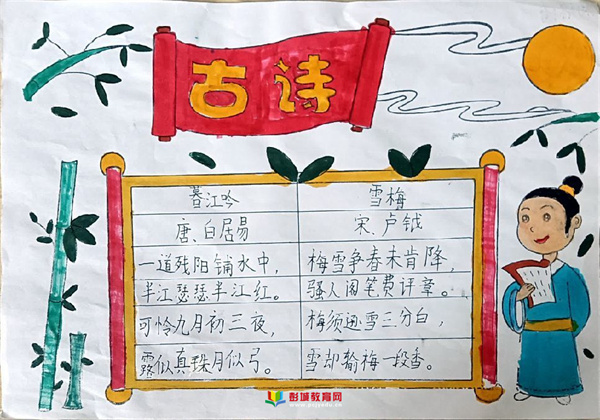 古诗
暮江吟
唐、白居易
一道残阳铺水中,
半江瑟瑟半江红。
可怜九月初三夜,
露似真珠月似弓。
雪梅
宋、卢钺
梅雪争春未肯降,
骚人阁笔费评章。
梅须逊雪三分白,
雪却输梅一段香。
彭城教育网